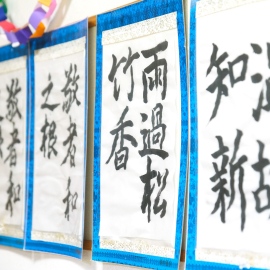 温故
知新
雨過松
竹香
敬者和
之根
敬者和